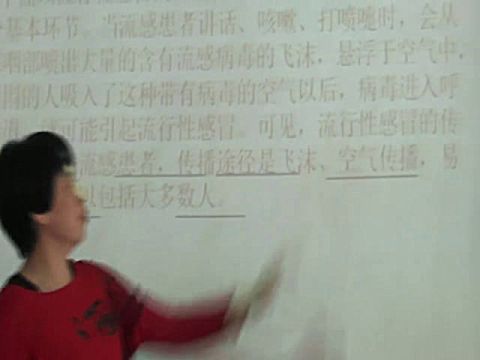 基本环节。当流感患者讲话、咳嗽、打喷嚏时，会从
咽部喷出大量的含有流感病毒的飞沫，悬浮于空气中，
围的人吸入了这种带有病毒的空气以后，病毒进入呼
可能引起流行性感冒。可见，流行性感冒的传
流感患者，传播途径是飞沫、空气传播，易
以包括大多数人。